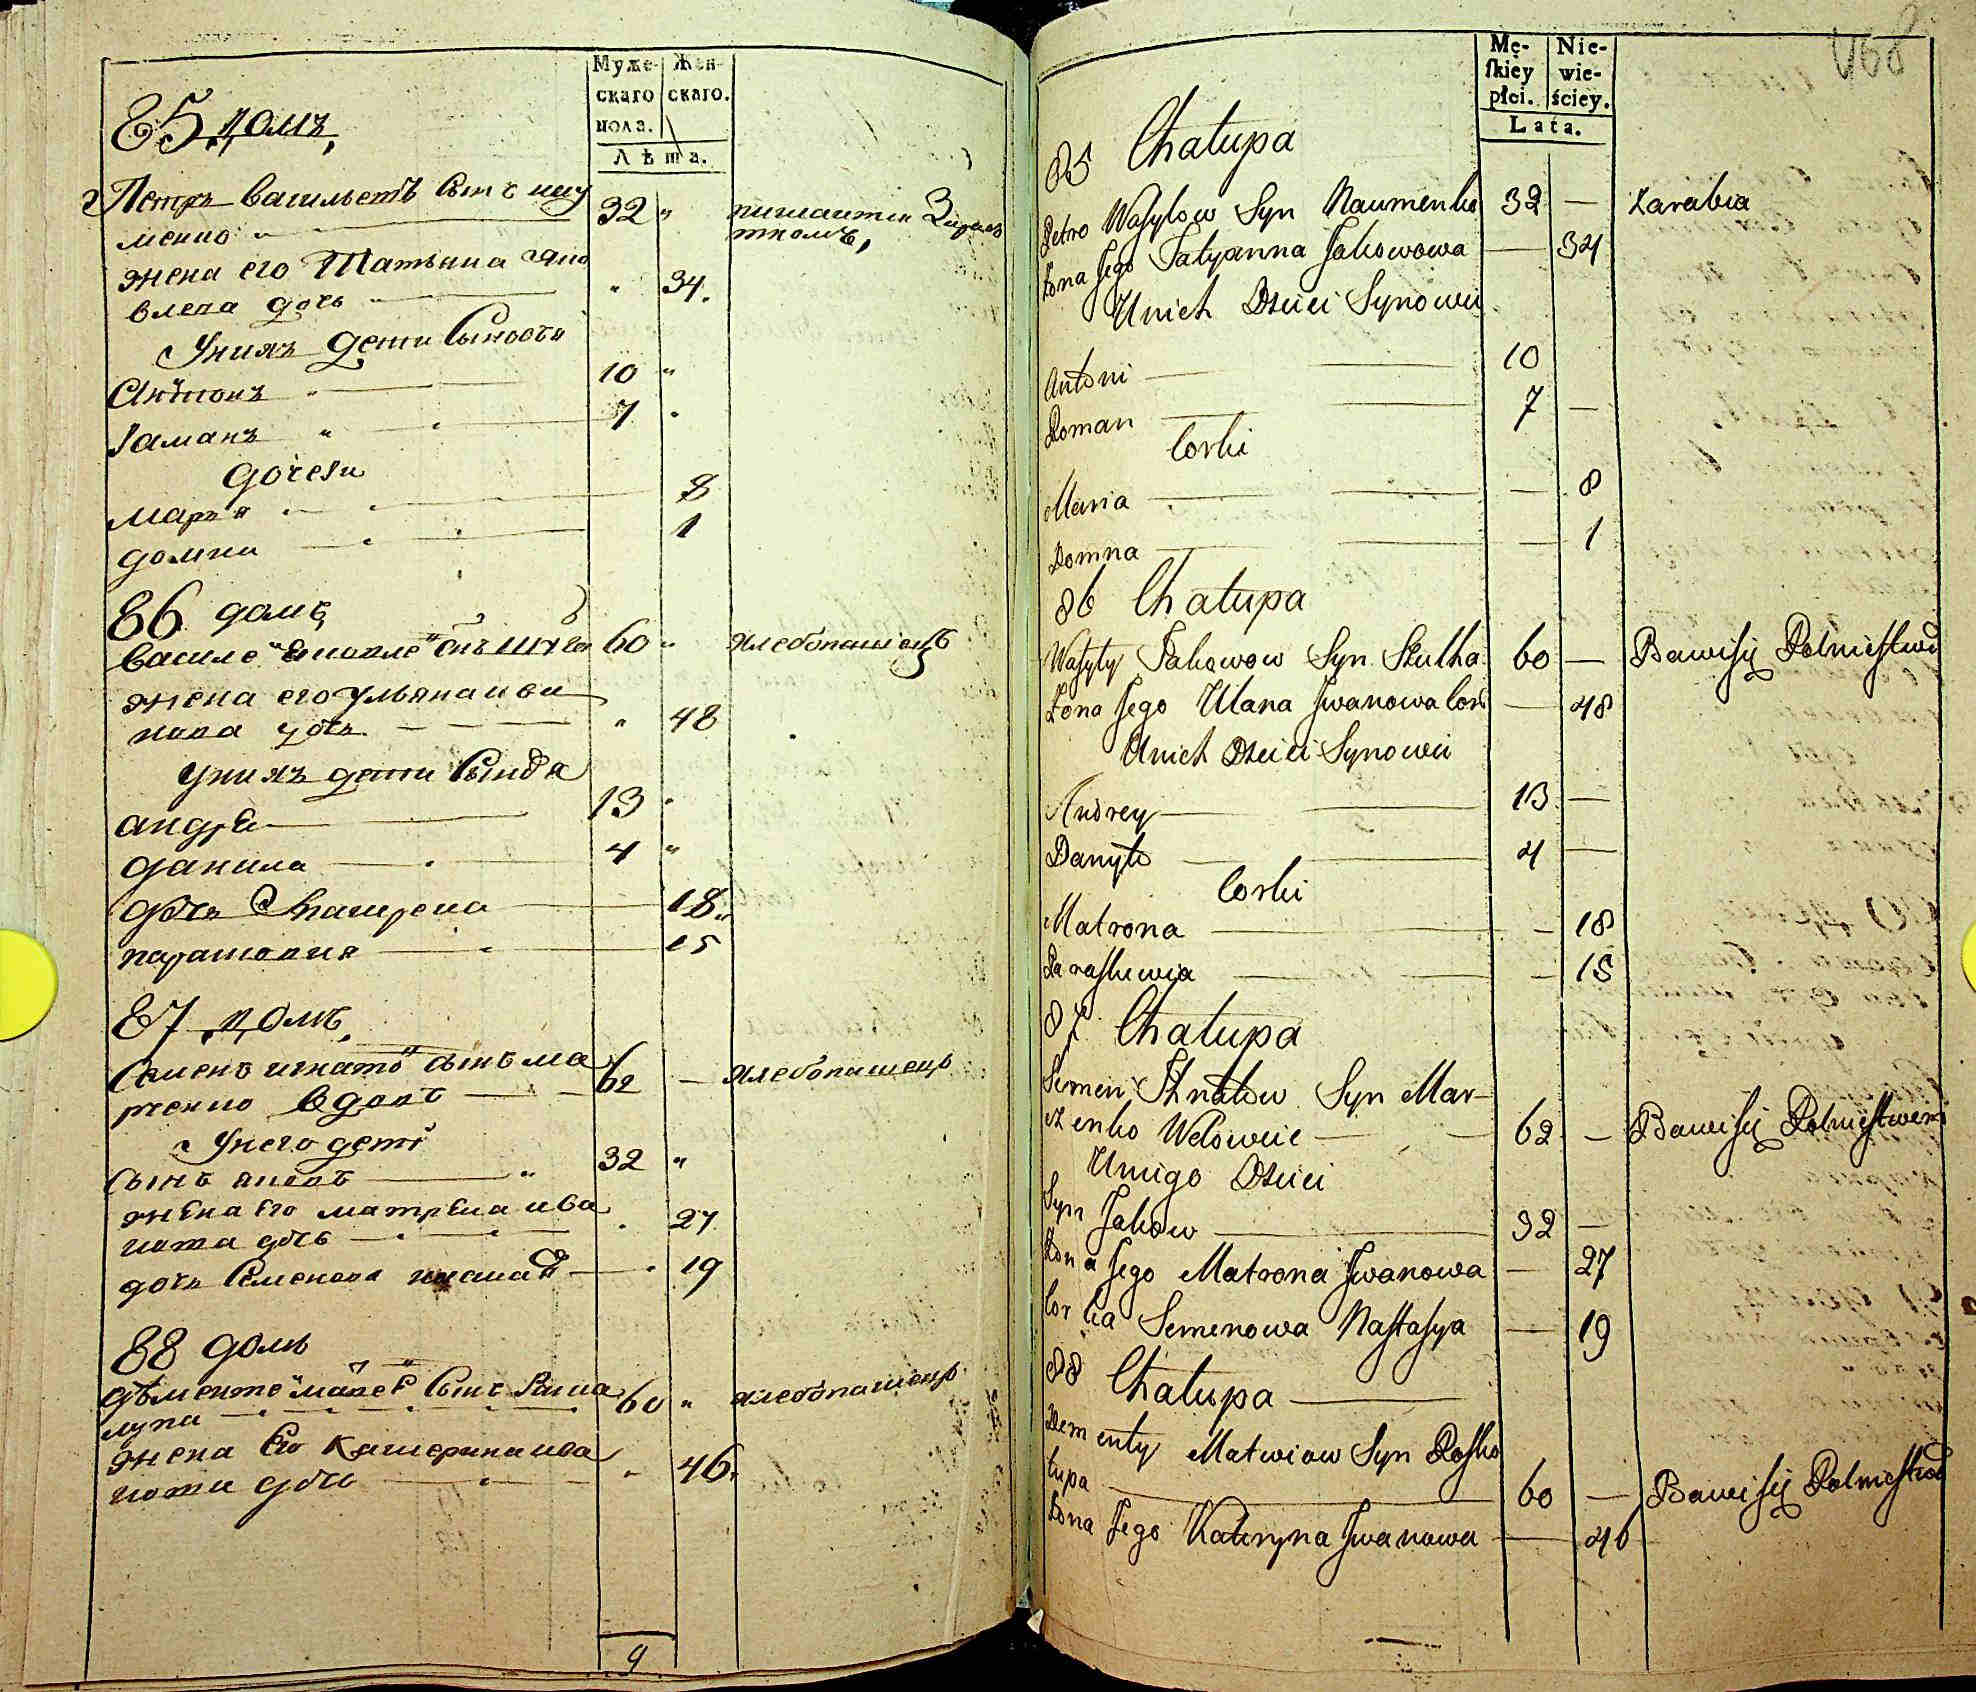 Муже-
скаго
пола.
Жен-
скаго.
Лѣта.
85 домъ,
Петръ васильевъ сынъ нау
менко 32 " питаится Зарабо
ткомъ,
жена его Татьяна яко
влева дочь " 34.
Унихъ дети Сыновья
Антонъ 10 "
Раманъ 7
дочери
Марья 8
домна 1
86 домъ
василе яковле сынъ 60 " хлебопашецъ
жена его ульяна ива
нова дочь " 48
Унихъ дети Сыновя
андре 13
данила 4 "
дочь 18
парасковия 15
87 домъ
Семенъ игнато сынъ ма
рченко вдовъ 62 — хлебопашецъ
Унего дети
Сынъ яковъ 32 "
жена его матрена ива
нова дочь 27
дочь Семенова 19
88 домъ
дементе матве Сынъ Раша
лупа 60 " хлебопашецъ
жена Его катерина ива
нова дочь 46.
9
468
Mę-
skiey
płci.
Nie-
wie-
ściey.
Lata.
85 Chałupa
Petro Wasylow Syn Naumenko 32 — Zarabia
Żona Jego Tatyanna Jakowowa — 34
Unich Dzieci Synowie
Antoni — 10
Roman — 7 —
Corki
Maria — 8
Domna — 1
86 Chałupa
Wasyly Jakowow Syn Szulha 60 — Bawi się Rolnictwem
Żona Jego Ulana Jwanowa Cor — 48
Unich Dzieci Synowie
Andrey — 13 —
Danyło — 4 —
Corki
Matrona — 18
Paraskiewia — 15
87 Chałupa
Semen Ihnatow Syn Mar-
czenko Wdowiec — 62 — Bawi się Rolnictwem
Uniego Dzieci
Syn Jakow — 32 —
Żona Jego Matrona Jwanowa — 27
Corka Semenowa Nastasya — 19
88 Chałupa —
Dementy Matwiow Syn Rosko
łupa — 60 — Bawi się Rolnictwem
Żona Jego Kateryna Jwanowa — 46